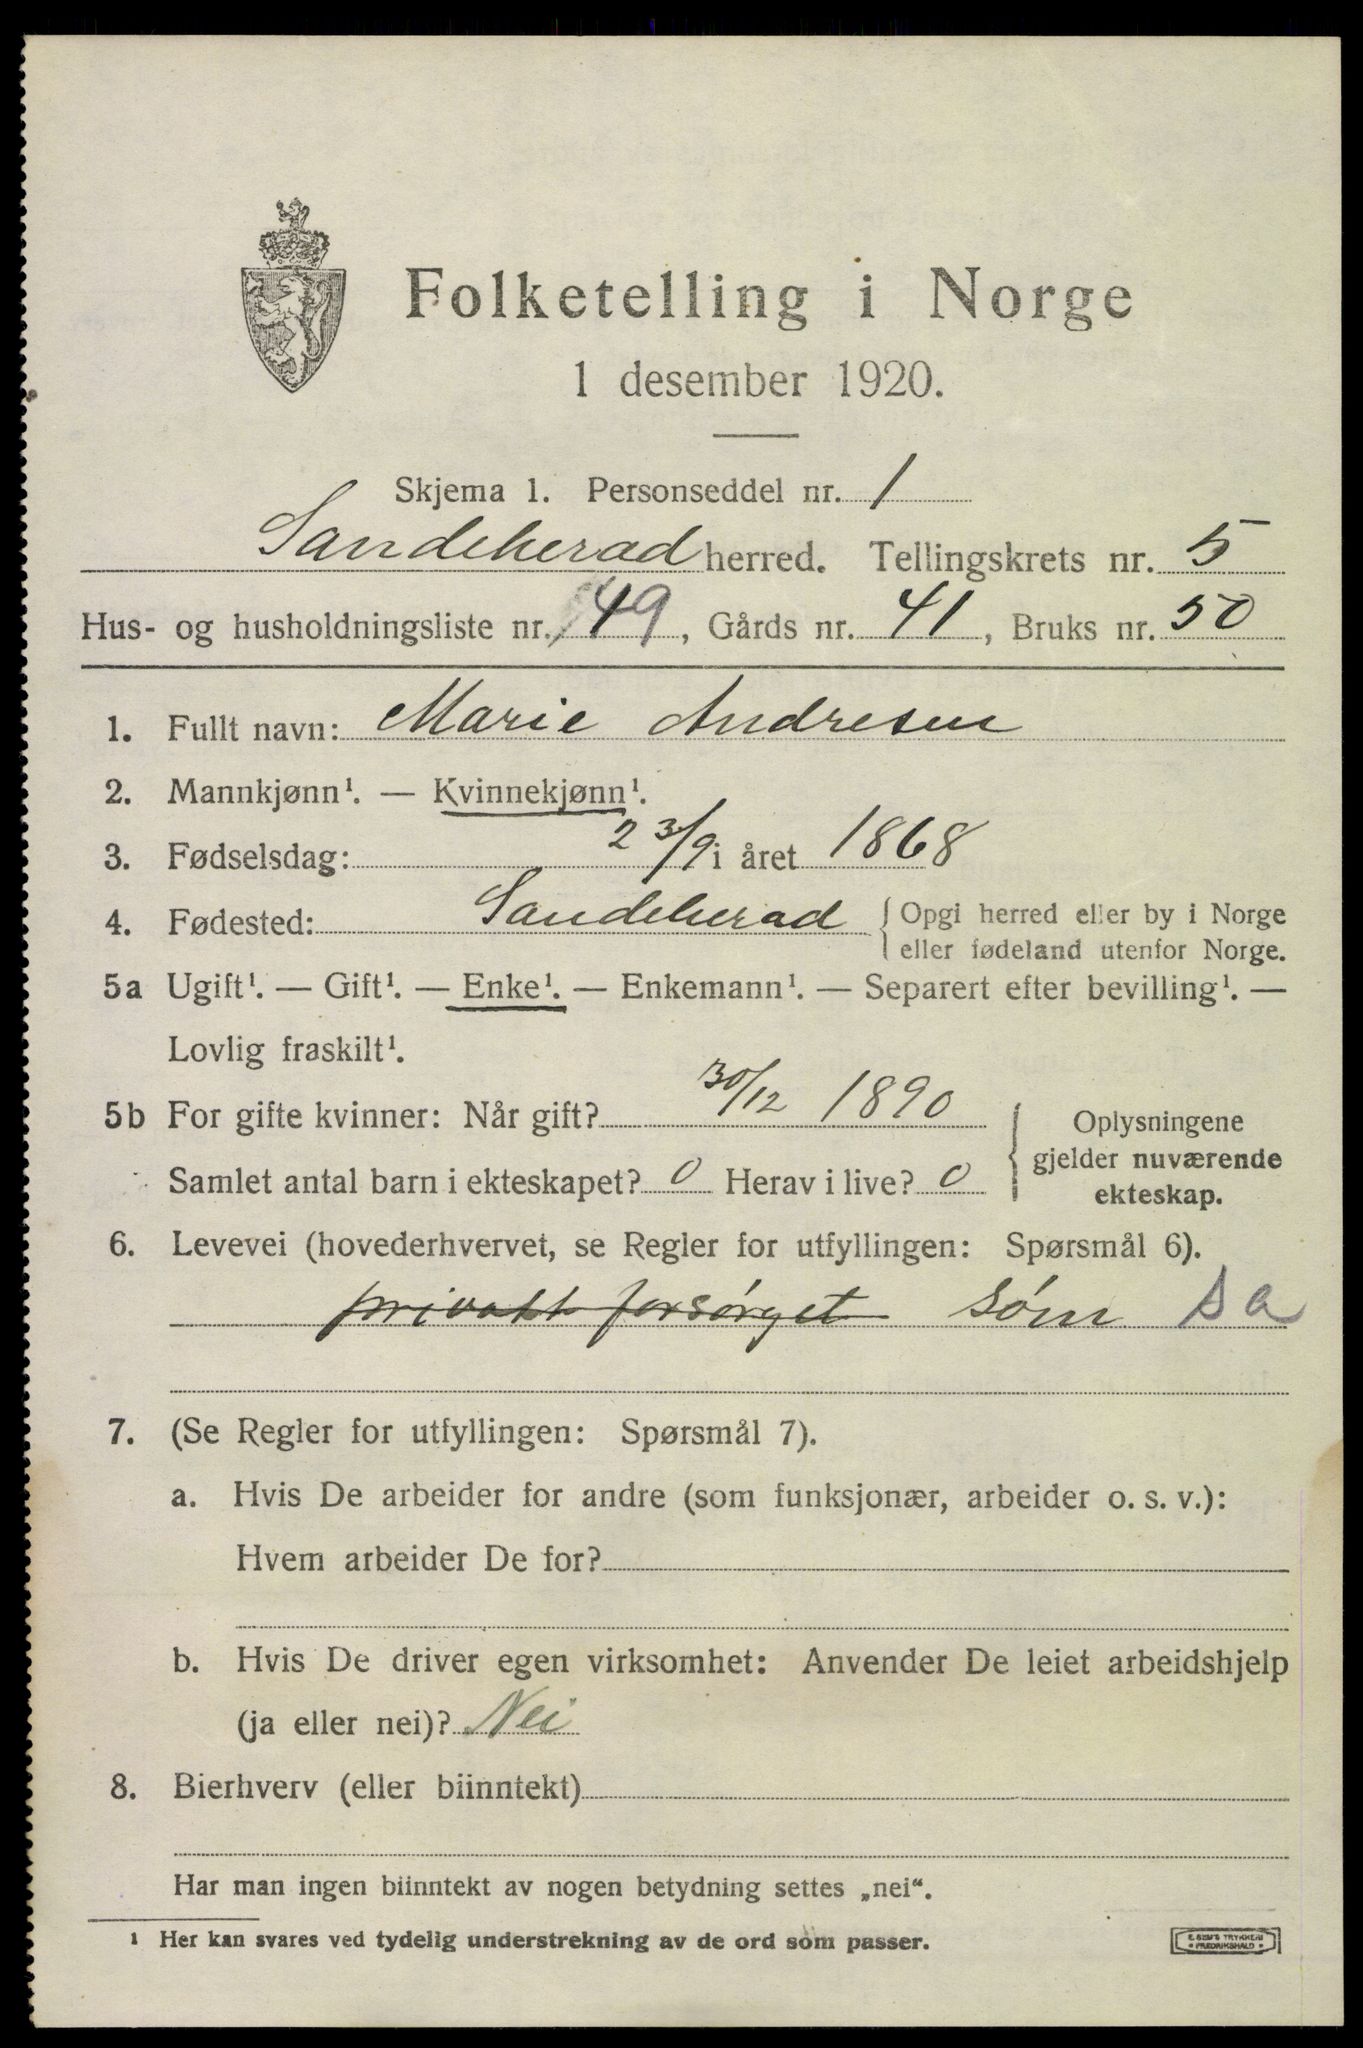 Folketelling i Norge
1 desember 1920.
Skjema 1. Personseddel nr. 1
Sandeherad herred. Tellingskrets nr. 5
Hus- og husholdningsliste nr. 149, Gårds nr. 41, Bruks nr. 50
1. Fullt navn: Marie Andresen
2. Mannkjønn¹. — Kvinnekjønn¹.
3. Fødselsdag: 23/9 i året 1868
4. Fødested: Sandeherad { Opgi herred eller by i Norge
eller fødeland utenfor Norge.
5a Ugift¹. — Gift¹. — Enke¹. — Enkemann¹. — Separert efter bevilling¹. —
Lovlig fraskilt¹.
5b For gifte kvinner: Når gift? 30/12 1890
Samlet antal barn i ekteskapet? 0 Herav i live? 0
Oplysningene
gjelder nuværende
ekteskap.
6. Levevei (hovederhvervet, se Regler for utfyllingen: Spørsmål 6).
privatt forsørget søm sa
7. (Se Regler for utfyllingen: Spørsmål 7).
a. Hvis De arbeider for andre (som funksjonær, arbeider o. s. v.):
Hvem arbeider De for?
b. Hvis De driver egen virksomhet: Anvender De leiet arbeidshjelp
(ja eller nei)? Nei
8. Bierhverv (eller biinntekt)
Har man ingen biinntekt av nogen betydning settes „nei“.
¹ Her kan svares ved tydelig understrekning av de ord som passer.
E. SEM'S TRYKKERI
• FREDRIKSHALD •